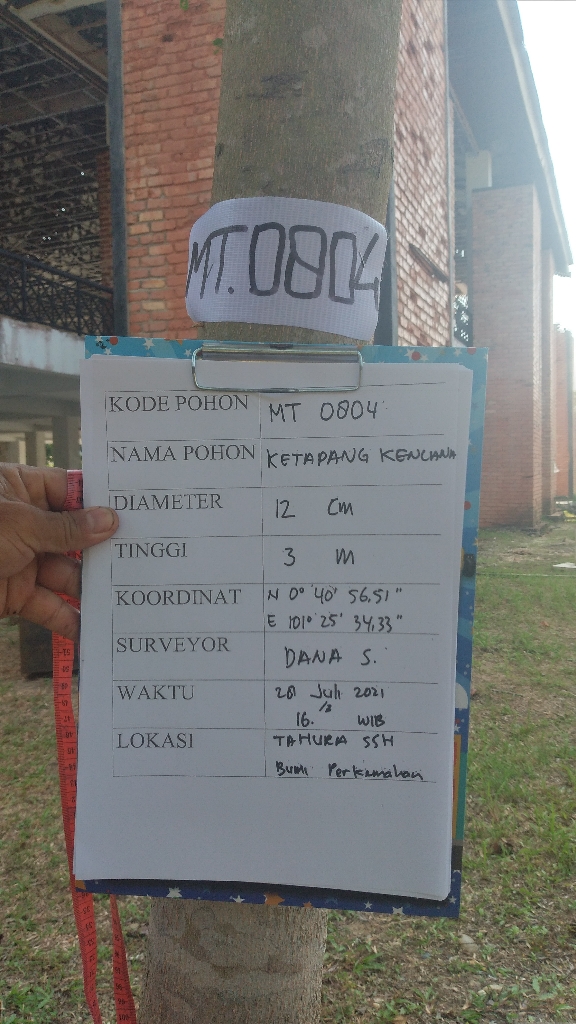 MT.0804
KODE POHON MT 0804
NAMA POHON KETAPANG KENCANA
DIAMETER 12 Cm
TINGGI 3 M
KOORDINAT N 0° 40' 56,51"
E 101° 25' 34,33"
SURVEYOR DANA S.
WAKTU 28 Juli 2021
16. WIB
LOKASI TAHURA SSH
Bumi Perkemahan